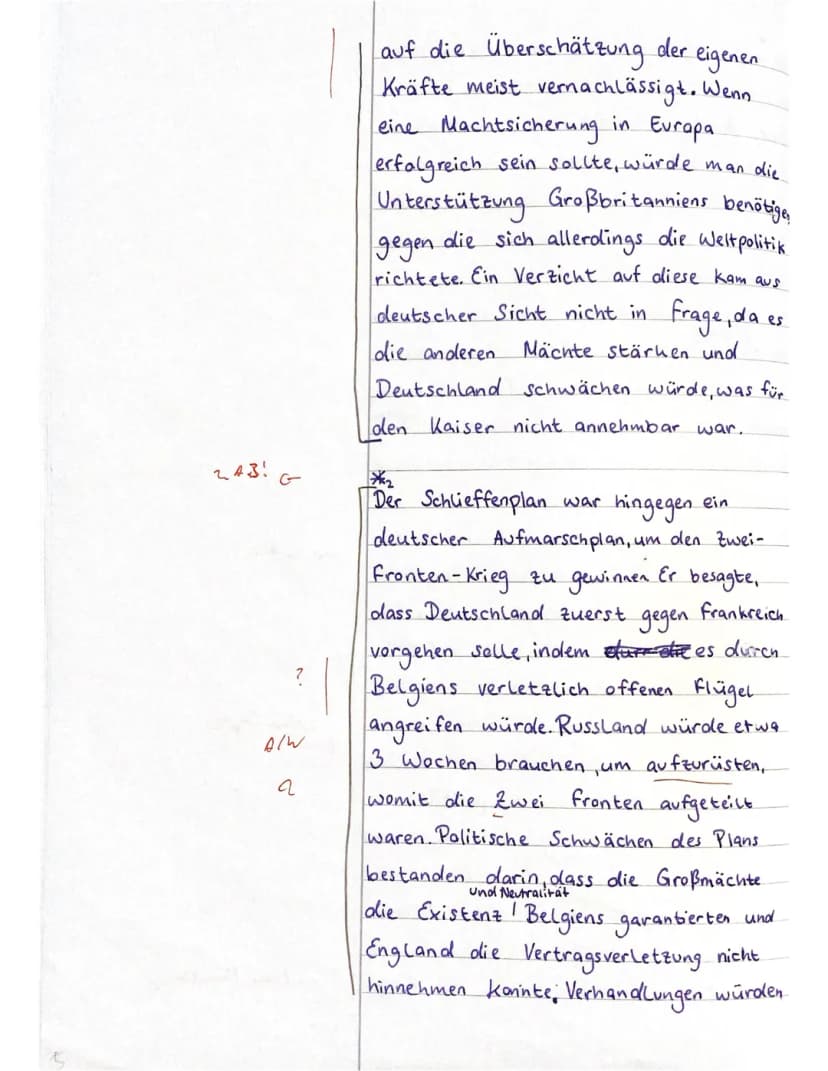 auf die Überschätzung der eigenen
Kräfte meist vernachlässigt. Wenn
eine Machtsicherung in Europa
erfolgreich sein sollte, würde man die
Unterstützung Großbritanniens benötigen,
gegen die sich allerdings die Weltpolitik
richtete. Ein Verzicht auf diese kam aus
deutscher Sicht nicht in Frage, da es
die anderen Mächte stärken und
Deutschland schwächen würde, was für
den Kaiser nicht annehmbar war.
2 AB! G
*2
Der Schlieffenplan war hingegen ein
deutscher Aufmarschplan, um den Zwei-
Fronten-Krieg zu gewinnen Er besagte,
dass Deutschland zuerst gegen Frankreich
vorgehen solle, indem es durch
?
Belgiens verletzlich offenen Flügel
angreifen würde. Russland würde etwa
A/W
3 Wochen brauchen, um aufzurüsten,
womit die Zwei Fronten aufgeteilt
waren. Politische Schwächen des Plans
bestanden darin, dass die Großmächte
und Neutralität
die Existenz Belgiens garantierten und
England die Vertragsverletzung nicht
hinnehmen konnte; Verhandlungen würden
5